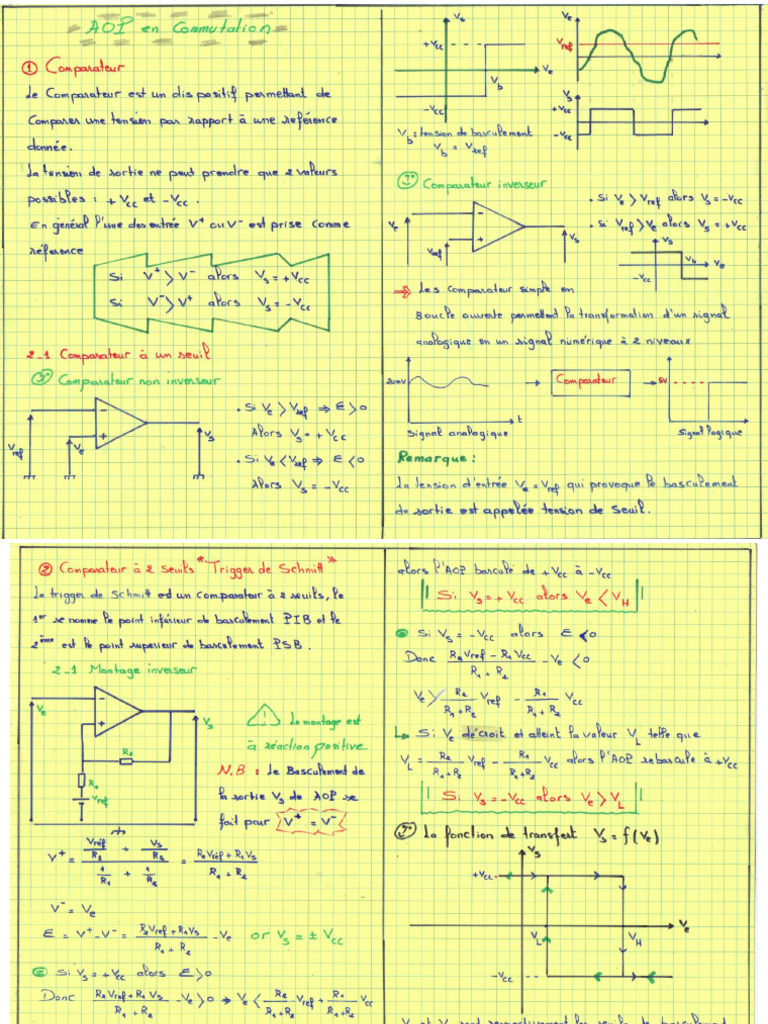 AOP en Commutation
① Comparateur
Le Comparateur est un dispositif permettant de
Comparer une tension par rapport à une reférence
donnée.
La tension de sortie ne peut prendre que 2 valeurs
possibles : + Vcc et - Vcc .
En général l'une des entrée V⁺ ou V⁻ est prise comme
réference
Si V⁺ > V⁻ alors Vs = + Vcc
Si V⁻ > V⁺ alors Vs = - Vcc
2-1 Comparateur à un seuil
Comparateur non inverseur
• Si Ve > Vref ⇒ E > 0
Alors Vs = + Vcc
• Si Ve < Vref ⇒ E < 0
Alors Vs = - Vcc
Vref
Ve
Vs
-
+
Vs
+Vcc
Ve
Vb
-Vcc
Vb : tension de basculement
Vb = Vref
Ve
Vref
Vs
+Vcc
-Vcc
Comparateur inverseur
Ve
Vref
Vs
-
+
• Si Ve > Vref alors Vs = - Vcc
• Si Vref > Ve alors Vs = + Vcc
Vs
Vb
Ve
-Vcc
⇒ Les comparateur simple en
Boucle ouverte permettent la transformation d'un signal
analogique en un signal numérique à 2 niveaux
20mV
t
signal analogique
Comparateur
5V
signal logique
Remarque :
La tension d'entrée Ve = Vref qui provoque le basculement
de sortie est appelée tension de Seuil.
② Comparateur à 2 seuils "Trigger de Schmitt"
Le trigger de Schmitt est un comparateur à 2 seuils, le
1er se nomme le point inférieur de basculement PIB et le
2ème est le point superieur de basculement PSB.
2-1 Montage inverseur
Ve
Vs
-
+
R2
R1
Vref
! Le montage est
à réaction positive
N.B : Le Basculement de
la sortie Vs de AOP se
fait pour V⁺ = V⁻
V⁺ = (Vref/R1 + Vs/R2) / (1/R1 + 1/R2) = (R2Vref + R1Vs) / (R1 + R2)
V⁻ = Ve
E = V⁺ - V⁻ = (R2Vref + R1Vs) / (R1 + R2) - Ve or Vs = ± Vcc
Si Vs = + Vcc alors E > 0
Donc (R2Vref + R1Vs) / (R1 + R2) - Ve > 0 ⇒ Ve < R2/(R1+R2) Vref + R1/(R1+R2) Vcc
alors l'AOP basculé de + Vcc à - Vcc
Si Vs = + Vcc alors Ve < VH
Si Vs = - Vcc alors E < 0
Donc (R2Vref - R1Vcc) / (R1 + R2) - Ve < 0
Ve > R2/(R1+R2) Vref - R1/(R1+R2) Vcc
↳ Si Ve décroit et atteint la valeur VL telle que
VL = R2/(R1+R2) Vref - R1/(R1+R2) Vcc alors l'AOP rebascule à + Vcc
Si Vs = - Vcc alors Ve > VL
La fonction de transfert Vs = f(Ve)
Vs
+Vcc
Ve
VL
VH
-Vcc